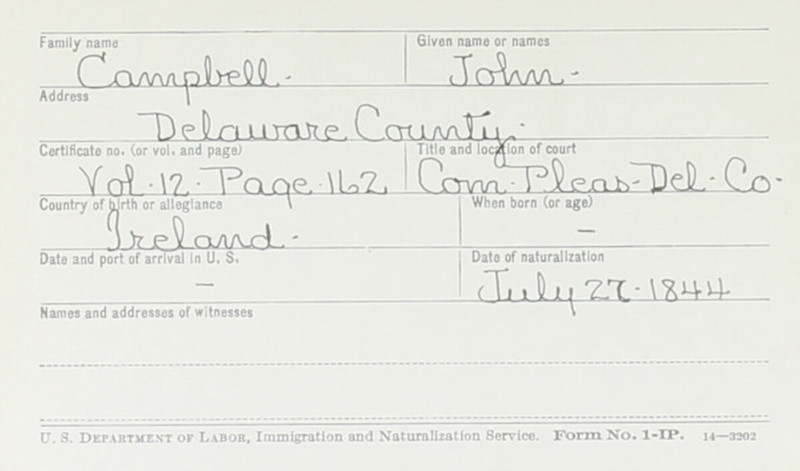 Family name Given name or names
Campbell. John.
Address
Delaware County.
Certificate no. (or vol. and page) Title and location of court
Vol. 12. Page. 162 Com. Pleas. Del. Co.
Country of birth or allegiance When born (or age)
Ireland. —
Date and port of arrival in U. S. Date of naturalization
— July 27. 1844
Names and addresses of witnesses
U. S. DEPARTMENT OF LABOR, Immigration and Naturalization Service. Form No. 1-IP. 14—3202